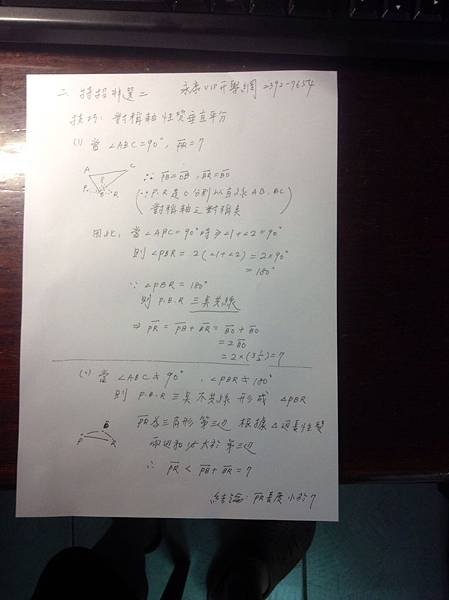 二 特招精選二 永泰VIP升學網 2392-7654
技巧: 對稱軸性質垂直平分
(1) 當 ∠ABC=90°, PR=7
A C
P B R
∴ PB=OB, BR=BO
(∵ P.R是O分別以直線AB、BC
對稱軸之對稱點)
因此: 當∠ABC=90°時⇒∠1+∠2=90°
則 ∠PBR = 2(∠1+∠2)=2×90°
=180°
∵ ∠PBR=180°
則 P.B.R 三點共線
⇒ PR = PB+BR = BO+BO
= 2BO
= 2×(3½)=7
(2) 當 ∠ABC≠90°, ∠PBR≠180°
則 P.B.R三點不共線 形成 ∠PBR
P B R
PR為三角形第三邊 根據△邊長性質
兩邊和必大於第三邊
∴ PR < PB+BR=7
結論: PR長度小於7